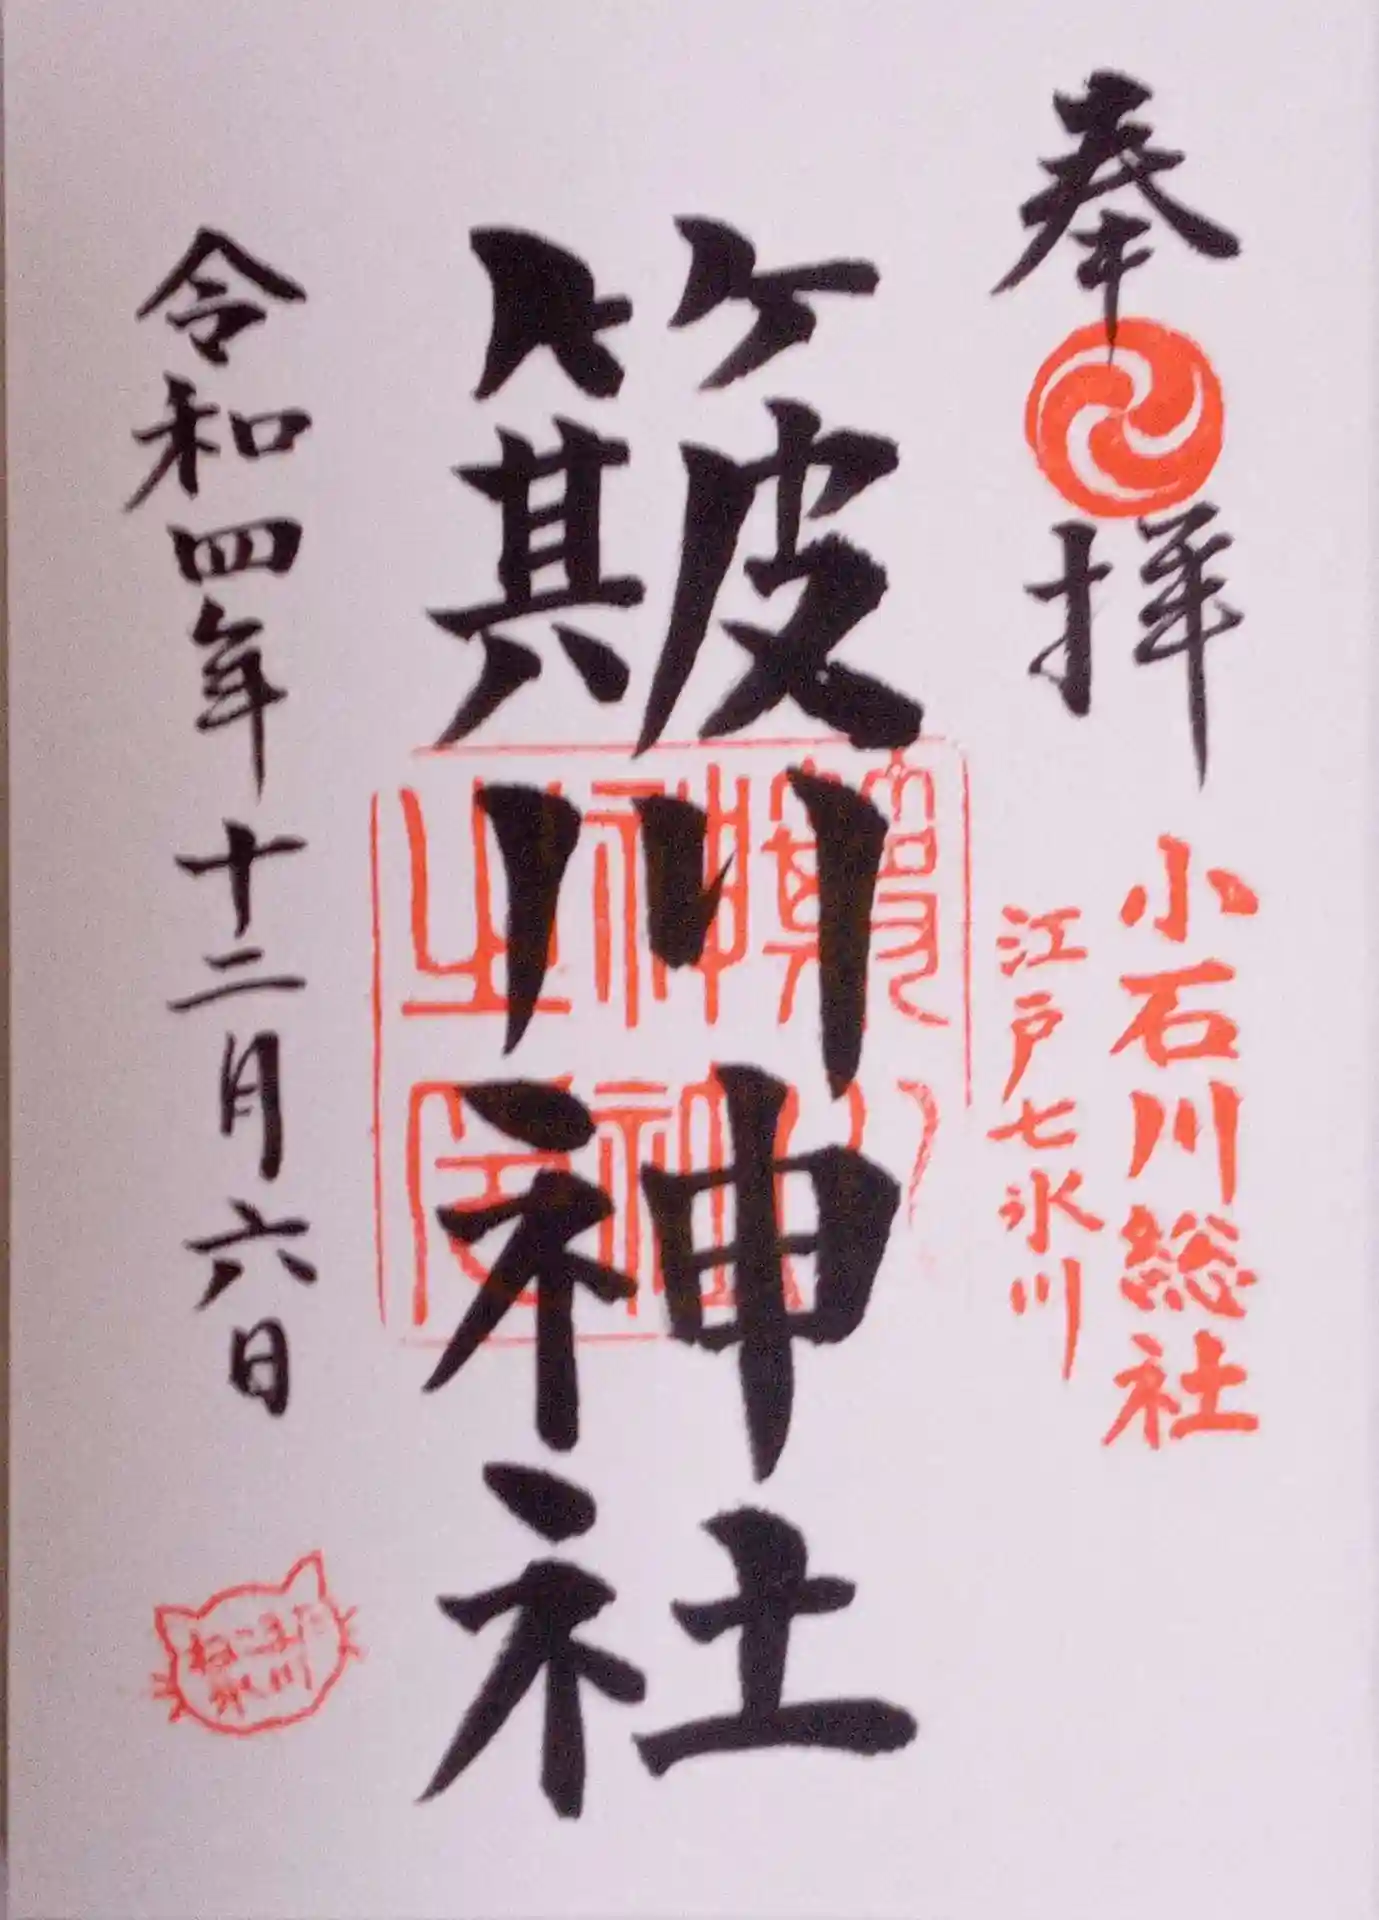 奉拝
小石川総社
江戸七氷川
簸川神社
簸川神社神璽之印
令和四年十二月六日
ねこまた
氷川